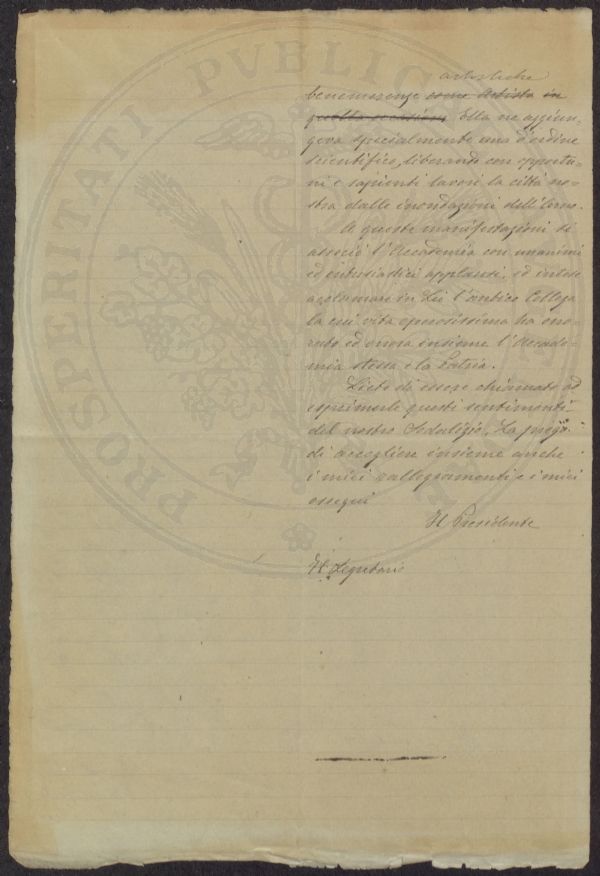 artistiche
benemerenze come Artista in
quella occasione Ella ne aggiun-
geva specialmente una d'ordine
scientifico, liberando con opportu-
ni e sapienti lavori la città no-
stra dalle inondazioni dell'Arno.
A queste manifestazioni si
associò l'Accademia con unanimi
ed entusiastici applausi, ed intese
acclamare in Lei l'antico Collega
la cui vita operosissima ha ono-
rato ed onora insieme l'Accade-
mia stessa e la Patria.
Lieto di essere chiamato ad
esprimerle questi sentimenti
del nostro Sodalizio, La prego
di accogliere insieme anche
i miei rallegramenti e i miei
ossequi
Il Presidente
Il Segretario
PROSPERITATI PVBLIC